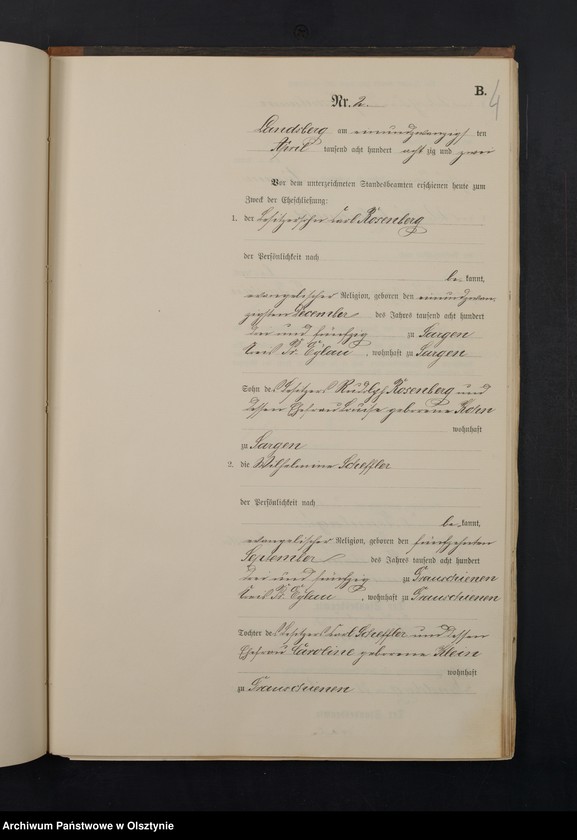 B.
4
Nr. 2.
Landsberg am einundzwanzigsten
April tausend acht hundert achtzig und zwei
Vor dem unterzeichneten Standesbeamten erschienen heute zum
Zweck der Eheschließung:
1. der Besitzersohn Carl Rosenberg
der Persönlichkeit nach
be kannt,
evangelischer Religion, geboren den einundzwan-
zigsten December des Jahres tausend acht hundert
drei und fünfzig zu Sargen
Kreis Pr. Eylau, wohnhaft zu Sargen
Sohn des Besitzers Rudolph Rosenberg und
dessen Ehefrau Louise geborene
wohnhaft
zu Sargen
2. die Wilhelmine Scheffler
der Persönlichkeit nach
be kannt,
evangelischer Religion, geboren den fünfzehnten
September des Jahres tausend acht hundert
drei und fünfzig zu
Kreis Pr. Eylau, wohnhaft zu
Tochter des Besitzers Carl Scheffler und dessen
Ehefrau Caroline geborene Klein
wohnhaft
zu
Archiwum Państwowe w Olsztynie